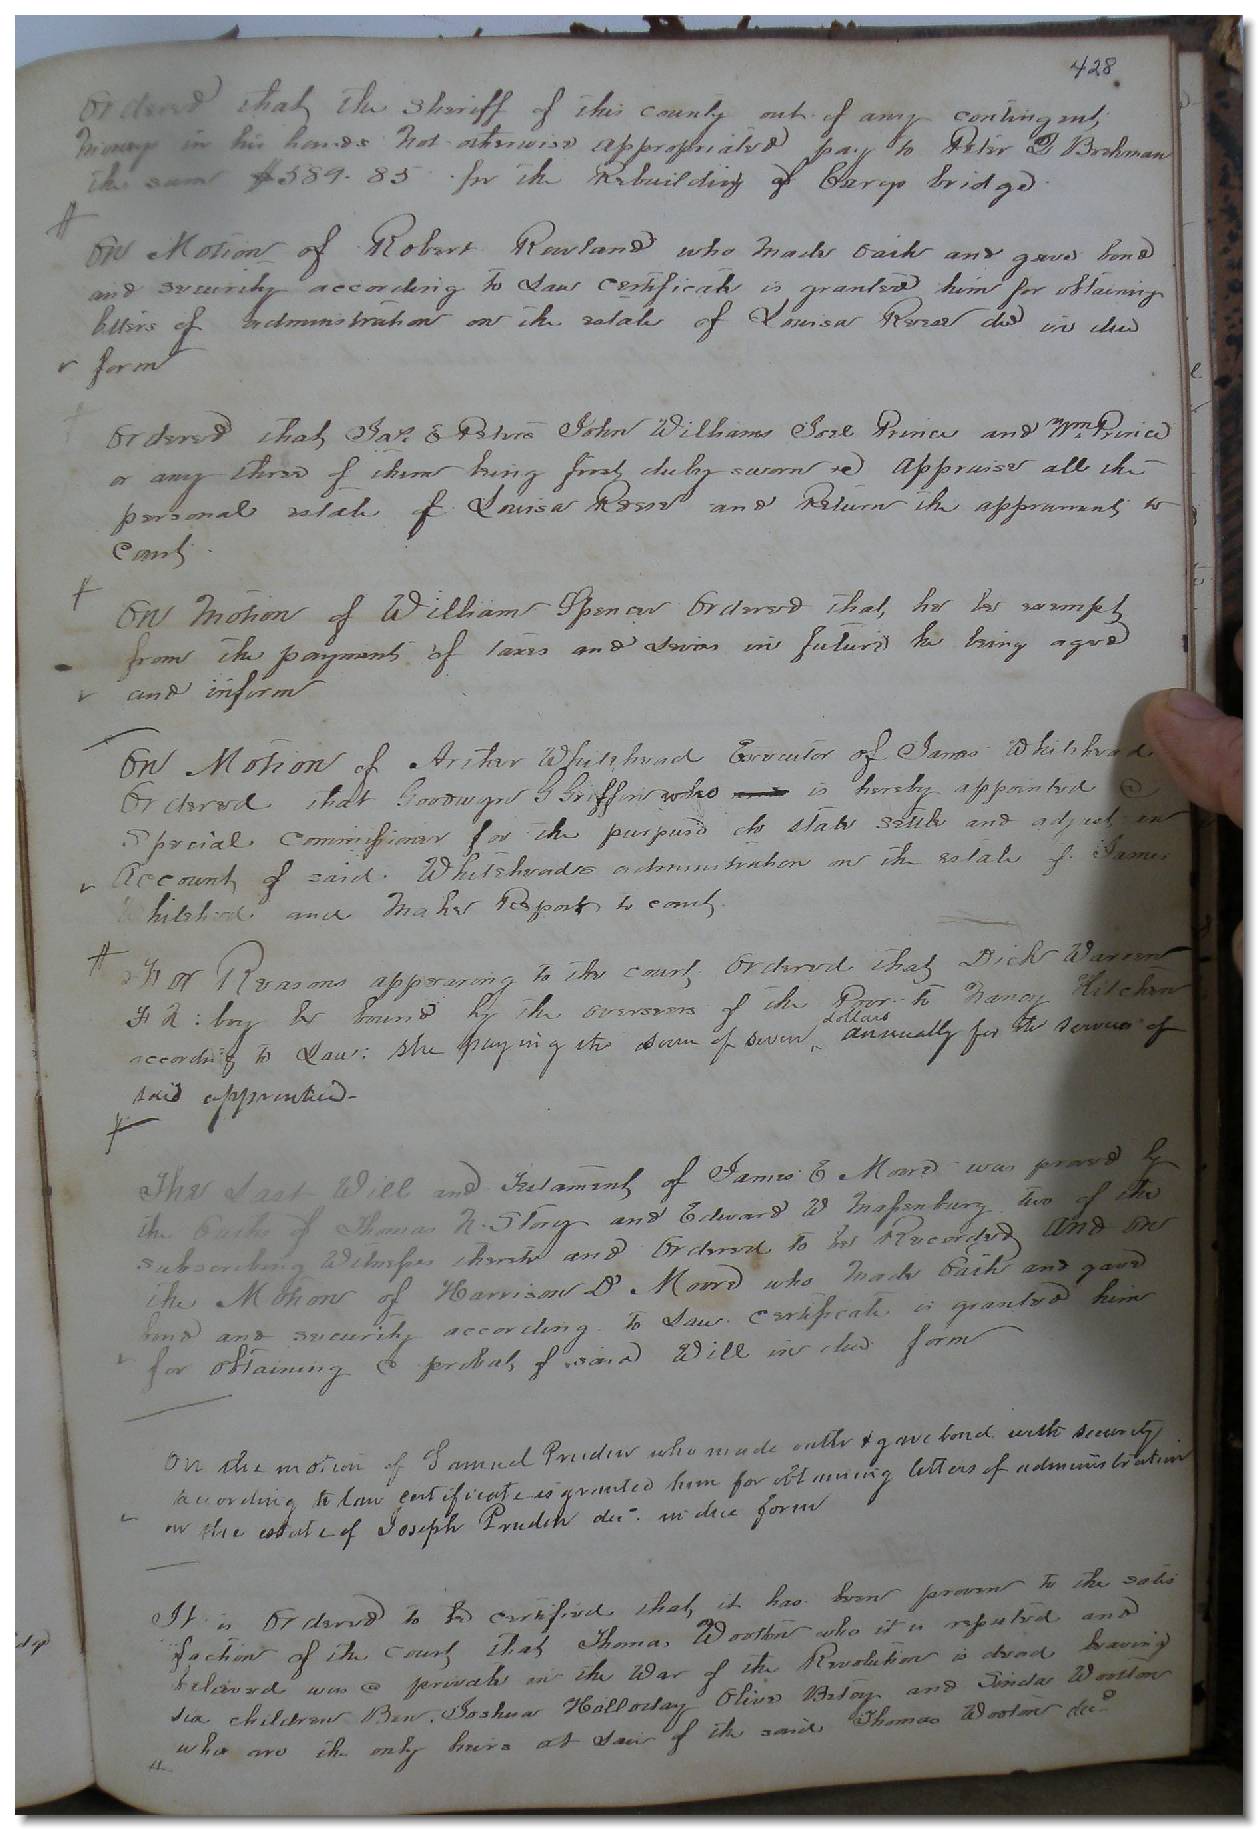 428
Ordered that the Sheriff of this county out of any contingent
money in his hands not otherwise appropriated pay to Peter Brohman
the sum $589.85 for the Rebuilding of bridge
On Motion of Robert Rowland who made oath and gave bond
and security according to Law certificate is granted him for obtaining
letters of administration on the estate of Louisa Reese decd in due
form
Ordered that Jas. E Peters John Williams Joel Prince and Wm. Prince
or any three of them being first duly sworn do appraise all the
personal estate of Louisa Reese and Return the appraisment to
court
On Motion of William Spencer Ordered that he be exempt
from the payment of taxes and Levies in future he being aged
and infirm
On Motion of Arther Whitehead Executor of James Whitehead
Ordered that Goodwyn G Griffin who is hereby appointed a
Special Commissioner for the purpose do state settle and adjust an
Account of said Whiteheads administration on the estate of James
Whitehead and Make Report to court
For Reasons appearing to the court Ordered that Dick Warren
F N : boy be bound by the overseers of the Poor to Nancy Kitchen
according to Law: She paying the sum of seven dollars annually for the services of
said apprentice-
The Last Will and Testament of James E Moore was proved by
the Oaths of Thomas N. Story and Edward W Massenburg two of the
subscribing Witnesses thereto and Ordered to be Recorded And on
the Motion of Harrison D Moore who made Oath and gave
bond and security according to Law certificate is granted him
for obtaining a probat of said Will in due form
On the motion of Samuel Pruden who made oath & gave bond with security
according to law certificate is granted him for obtaining letters of administration
on the estate of Joseph Pruden dec. in due form
It is Ordered to be certified that it has been proven to the satis
faction of the court that Thomas Wooten who it is reputed and
believed was a private in the War of the Revolution is dead leaving
six children Ben. Joshua Holloday Olive Betsy and Linda Wooten
who are the only heirs at Law of the said Thomas Wooten decd